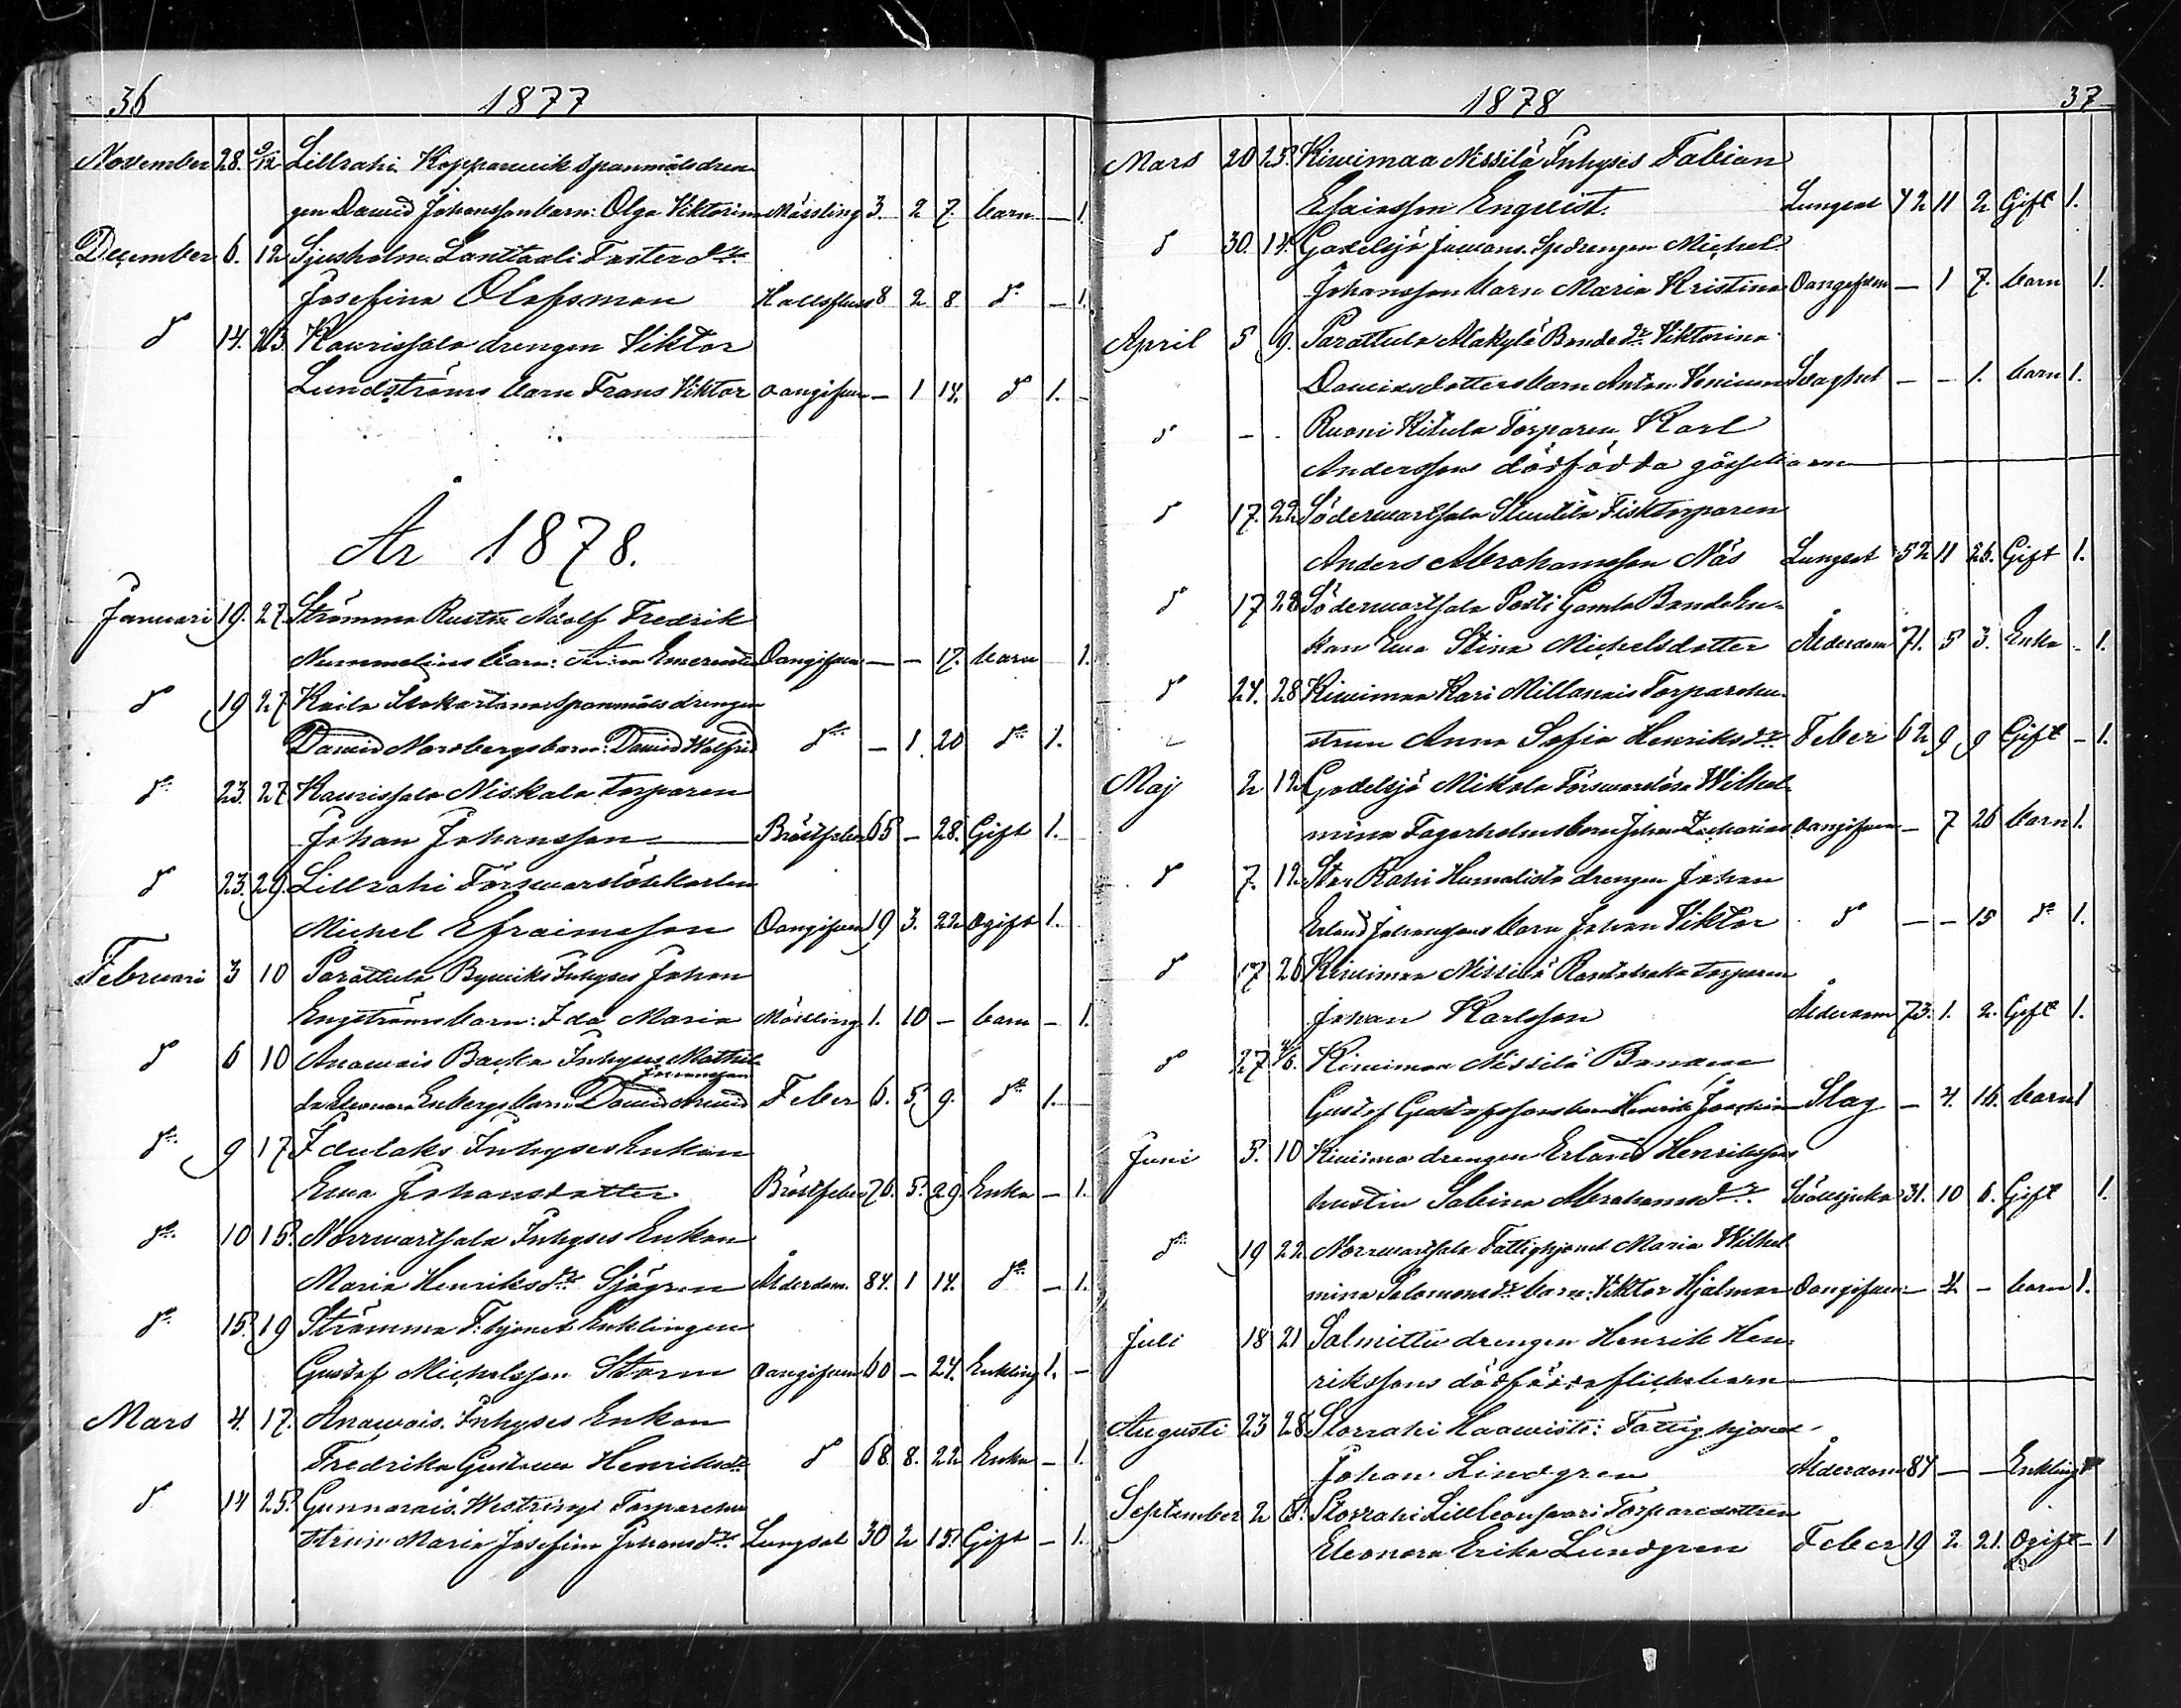 36 1877
November 28. 9/12 Lillrahi Kopparwik Spanmåls dren
gen Dawid Johansson barn: Olga Viktorina Mässling 3. 2 7. barn — 1.
December 6. 12 Sjusholm Lanttaali Foster dr
Josefina Olofsman Halssfluss 8 2 8 do — 1.
do 14. 23. Kaurissala drengen Viktor
Lundströms barn Frans Viktor oangifven — 1 14. do 1. -
År 1878.
Januari 19. 27. Strömma Rusthå Adolf Fredrik
Nummelins barn: Oangifven — — 17. barn 1.
do 19 27. Kaila Spanmåls drengen
Dawid Norrbergs barn: Dawid Walfrid do — 1. 20 do 1.
do 23. 27. Kaurissala Niskala torparen
Johan Johansson Bröstfeber 65 — 28. Gift 1.
do 23. 29. Lillrahi Förswarslöskarlen
Michel Efraimsson Oangifven 19 3. 22 Ogift 1.
Februari 3 10 Parattula Bywiks Inhyses Johan
Engströms barn: Ida Maria Mässling 1. 10 — barn — 1.
do 6 10 Anawais Backa Inhyses Mathil
Johansson
da Eleonora Enbergs barn Dawid Feber 6. 5. 9. do 1.
do 9 17 Idulaks Inhyses Enkan
Ewa Johansdotter Bröstfeber 76. 5. 29. Enka — 1.
do 10 15. Norrwartsala Inhyses Enkan
Maria Henriksdr Sjögren Ålderdom. 84. 1 14. do — 1.
do 15. 19 Strömma F:hjonet Enklingen
Gustaf Michelsson Storm oangifven 60 — 24. Enkling 1. —
Mars 4. 17. Anawais. Inhyses Enkan
Fredrika Gustawa Henriksdr do 68. 8. 22 Enka — 1.
do 14 25. Gunnarais. Torparehu
strun Maria Josefina Johansdr Lungsot 30 2 15. Gift — 1.
1878 37
Mars 20 25. Kiwimaa Nissilä Inhyses Fabian
Esaiasson Engqvist. Lungsot 42 11 2 Gift 1.
do 30. 14. Godelsjö drengen Michel
Johansson barn Maria Kristina Oangifven — 1 7. barn 1.
April 5 9. Parattula Alakylä Bonde dr Viktorina
Dawidsdotters barn Anton Swaghet — — 1. barn 1.
do — . Ruoni Kitula Torparen Karl
Anderssons dödfödda gossebarn
do 17. 22. Söderwartsala Fisktorparen
Anders Abrahamsson Näs Lungsot 52 11 26. Gift 1.
do 17 28 Söderwartsala Posti Gamla Bondeen-
kan Ewa Stina Michelsdotter Ålderdom 71. 5 3. Enka - 1.
do 24. 28 Kiwimaa Kari Millanais Torparehu-
strun Anna Sofia Henriksdr Feber 62 9 9 Gift — 1.
Maj 2 12 Godelsjö Mikola Förswarslösa Wilhel-
mina Fagerholms barn Johan Zacharias oangifven — 7 26 barn 1.
do 7. 12. Stor Rahi Humalisto drengen Johan
Erland Johanssons barn Johan Viktor do — — 15 do 1.
do 17 26 Kiwimaa Nissilä torparen
Johan Karlsson Ålderdom 73. 1. 2. Gift 1.
do 27 /6. Kiwimaa Nissilä Bonden
Gustaf Gustafssons barn Henrik Joachim Slag — 4. 16. barn 1
Juni 5. 10 Kiwimaa drengen Erland Henrikssons
hustru Sabina Abrahamsdr 31. 10 6. Gift 1.
do 19 22. Norrwartsala Fattighjonet Maria Wilhel
mina Salomonsdr barn: Viktor Hjalmar Oangifven — 4 — barn 1.
Juli 18 21 Salmittu drengen Henrik Hen-
rikssons dödfödda flickebarn
Augusti 23 28 Storrahi Haawisto: Fattighjonet
Johan Lindgren Ålderdom 84 — — Enkling
September 2 8. Storrahi Torparedottren
Eleonora Erika Lundgren Feber 19 2 21. Ogift — 1